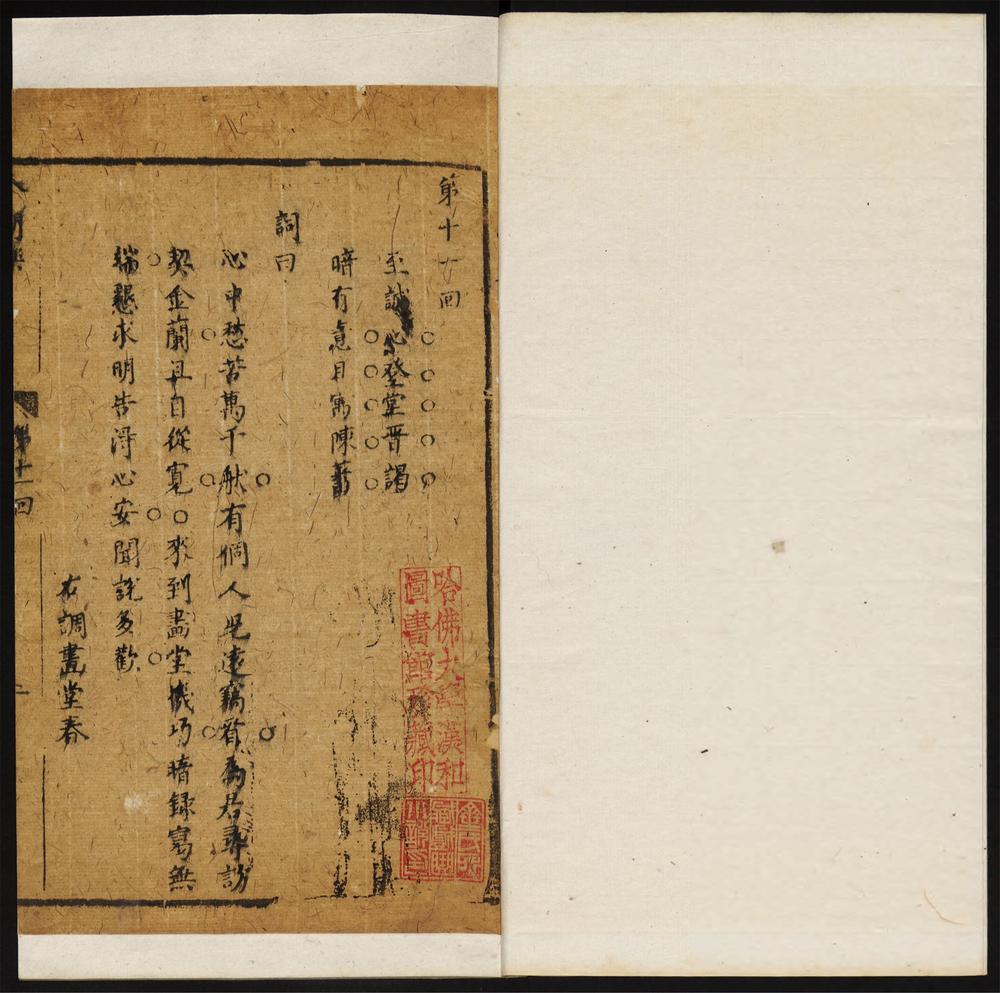 第十回
至誠心登堂晋謁
暗有意月寓陳蕃
詞曰
心中愁苦萬千般有個人兒遠竊看為君尋訪
契金蘭且自從寬來到畫堂機巧暗録寫無
端懇求明告得心安聞說多歡
右調畫堂春
第十一回
哈佛大學漢和
圖書館珍藏印